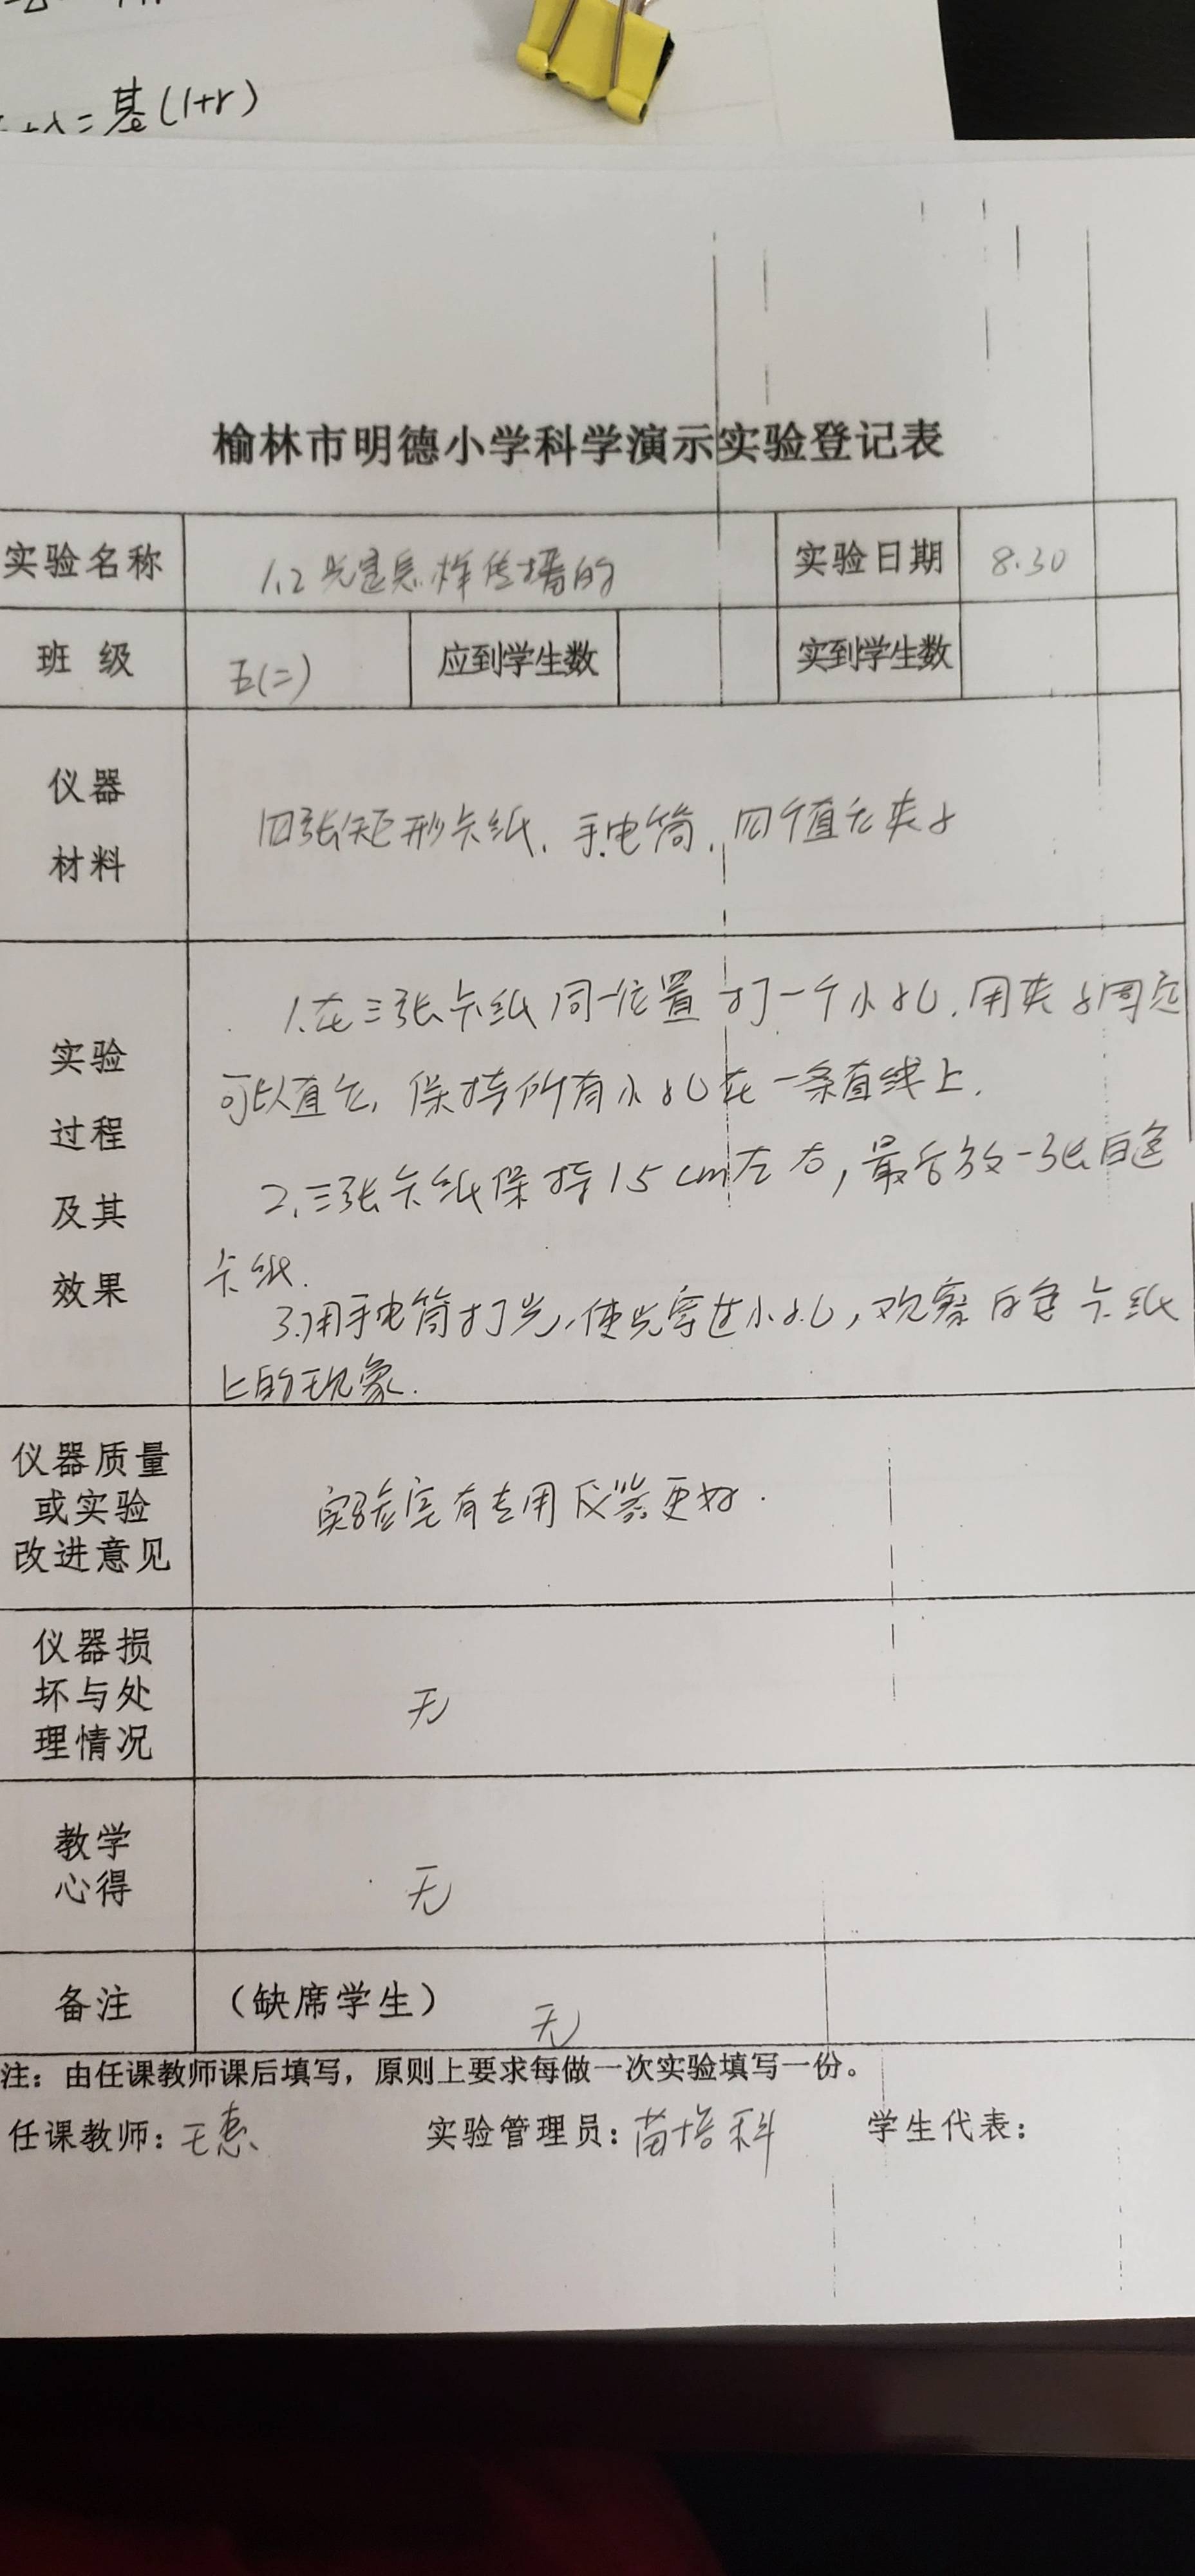 =基(1+r)
榆林市明德小学科学演示实验登记表
实验名称 1.2光是怎样传播的 实验日期 8.30
班 级 五(二) 应到学生数 实到学生数
仪器
材料
四张矩形卡纸、手电筒、四个直立夹子
实验
过程
及其
效果
1.在三张卡纸同一位置打一个小孔,用夹子固定
可以直立,保持所有小孔在一条直线上.
2.三张卡纸保持15cm左右,最后放一张白色
卡纸.
3.用手电筒打光,使光穿过小孔,观察白色卡纸
上的现象.
仪器质量
或实验
改进意见
实验室有专用仪器更好.
仪器损
坏与处
理情况
无
教学
心得
无
备注 (缺席学生) 无
注:由任课教师课后填写,原则上要求每做一次实验填写一份。
任课教师: 王惠 实验管理员: 苗培科 学生代表: